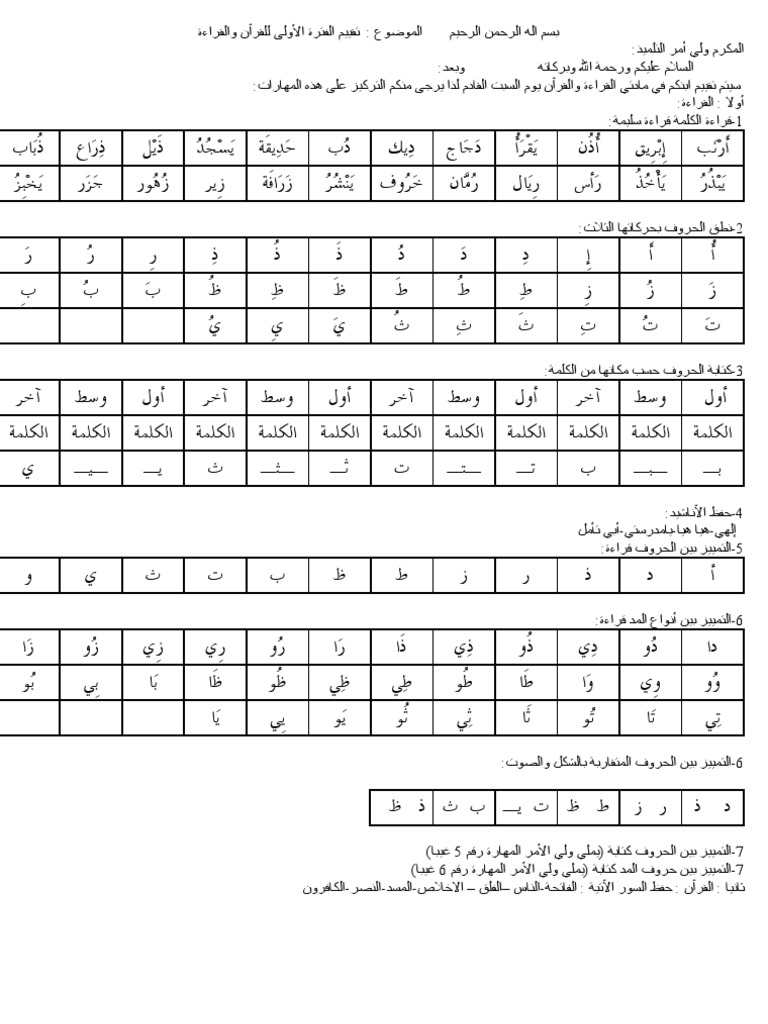 بسم اله الرحمن الرحيم الموضوع : تقييم الفترة الأولى للقرآن والقراءة
المكرم ولي أمر التلميذ:
السلام عليكم ورحمة الله وبركاته وبعد:
سيتم تقييم ابنكم في مادتي القراءة والقرآن يوم السبت القادم لذا يرجى منكم التركيز على هذه المهارات:
أولا : القراءة:
1-قراءة الكلمة قراءة سليمة:
أَرْنَب إِبْرِيق أُذُن يَقْرَأُ دَجَاج دِيك دُب حَدِيقَة يَسْجُدُ ذَيْل ذِرَاع ذُبَاب
يَبْذُرُ يَأْخُذُ رَأس رِيَال رُمَّان خَرُوف يَنْشُرُ زَرَافَة زِير زُهُور جَزَر يَخْبِزُ
2-نطق الحروف بحركاتها الثلاث:
أُ أَ إِ دِ دَ دُ ذَ ذُ ذِ رِ رُ رَ
زَ زُ زِ طِ طُ طَ ظَ ظِ ظُ بَ بُ بِ
تَ تُ تِ ثَ ثِ ثُ يَ يِ يُ
3-كتابة الحروف حسب مكانها من الكلمة:
أول وسط آخر أول وسط آخر أول وسط آخر أول وسط آخر
الكلمة الكلمة الكلمة الكلمة الكلمة الكلمة الكلمة الكلمة الكلمة الكلمة الكلمة الكلمة
بــ ــبــ ب تــ ــتــ ت ثــ ــثــ ث يــ ــيــ ي
4-حفظ الأناشيد:
إلهي-هيا هيا-يامدرستي-أبي تأمل
5-التمييز بين الحروف قراءة:
أ د ذ ر ز ط ظ ب ت ث ي و
6-التمييز بين أنواع المد قراءة:
دا دُو دِي ذُو ذِي ذَا رَا رُو رِي زِي زُو زَا
وُو وِي وَا طَا طُو طِي ظِي ظُو ظَا بَا بِي بُو
تِي تَا تُو ثَا ثِي ثُو يَو يِي يَا
6-التمييز بين الحروف المتقاربة بالشكل والصوت:
د ذ ر ز ط ظ ت يــ ب ث ذ ظ
7-التمييز بين الحروف كتابة (يملي ولي الأمر المهارة رقم 5 غيبا)
7-التمييز بين حروف المد كتابة (يملي ولي الأمر المهارة رقم 6 غيبا)
ثانيا : القرآن : حفظ السور الأتية : الفاتحة-الناس –الفلق – الاخلاص-المسد-النصر-الكافرون